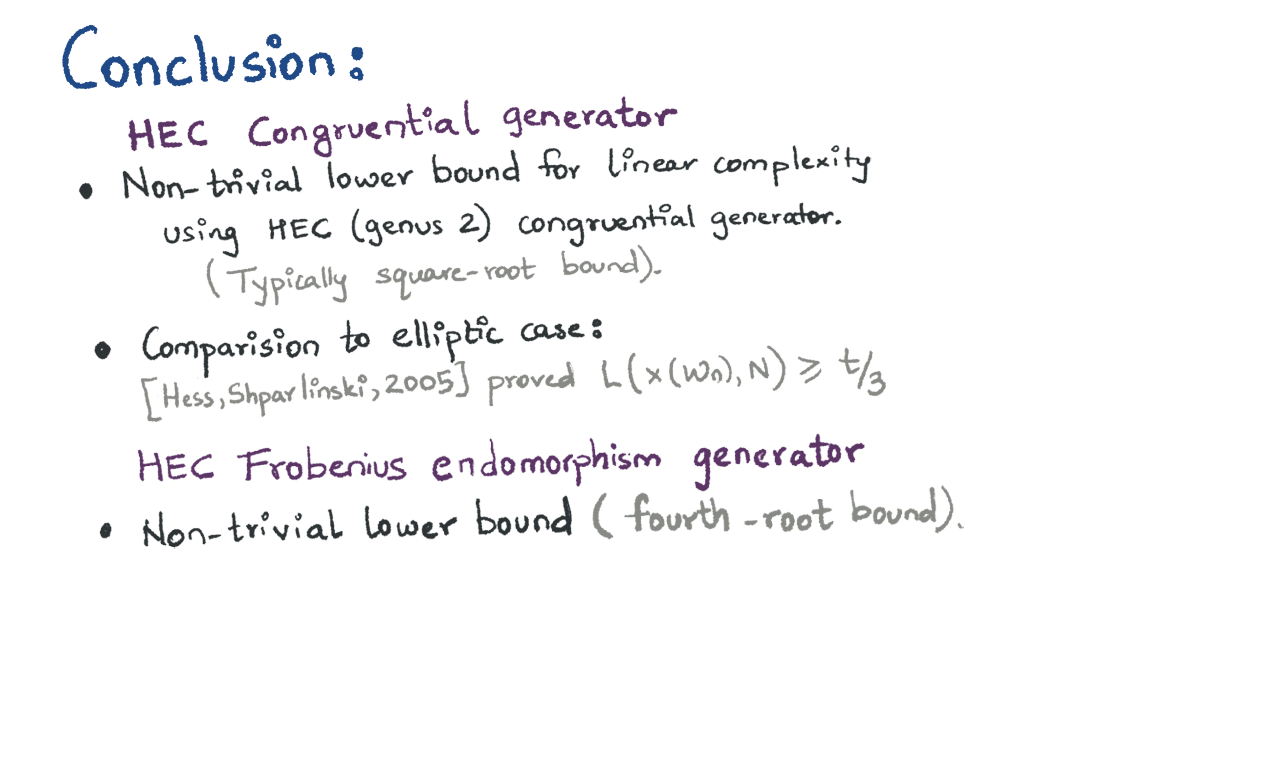 Conclusion:
HEC Congruential generator
• Non-trivial lower bound for linear complexity
using HEC (genus 2) congruential generator.
(Typically square-root bound).
• Comparision to elliptic case:
[Hess, Shparlinski, 2005] proved L(x(Wn), N) ⩾ t/3
HEC Frobenius endomorphism generator
• Non-trivial lower bound (fourth-root bound).